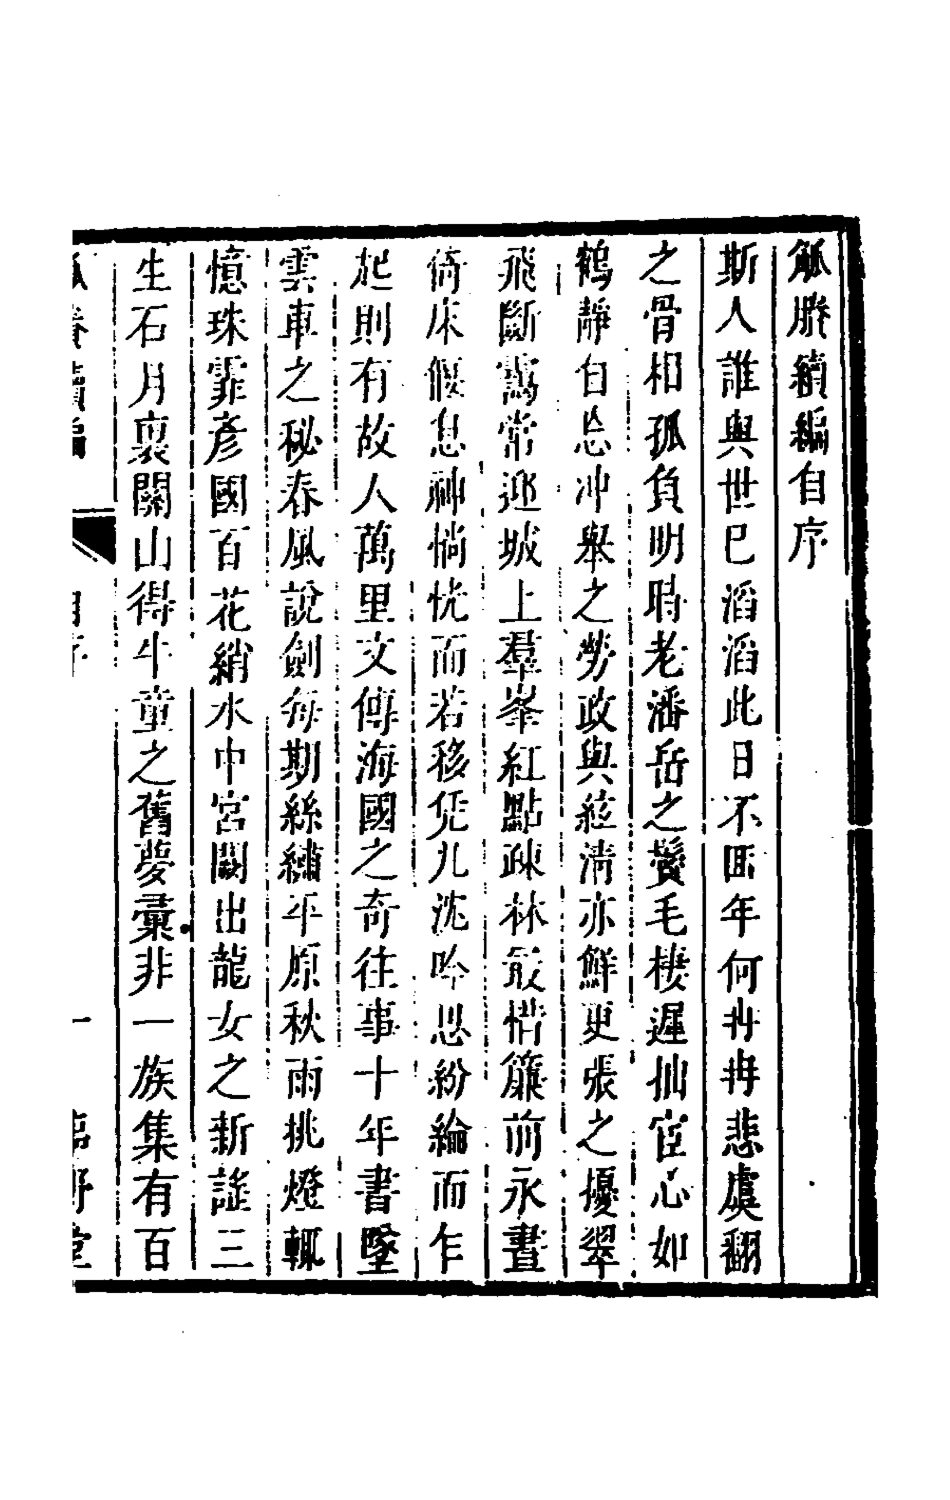 觚賸續編自序
斯人誰與世已滔滔此日不囬年何冉冉悲虞翻
之骨相孤負明時老潘岳之鬢毛棲遲拙宦心如
鶴靜自忘冲舉之勞政與絃清亦鮮更張之擾翠
飛斷靄常迎城上羣峯紅點疎林最惜簾前永晝
倚床偃息神惝恍而若移凭几沈吟思紛綸而乍
起則有故人萬里文傳海國之奇往事十年書墜
雲車之秘春風說劍每期絲繡平原秋雨挑燈輒
憶珠霏彥國百花綃水中宮闕出龍女之新謠三
生石月裏關山得牛童之舊夢彙非一族集有百
觚賸續編 自序 一 臨野堂